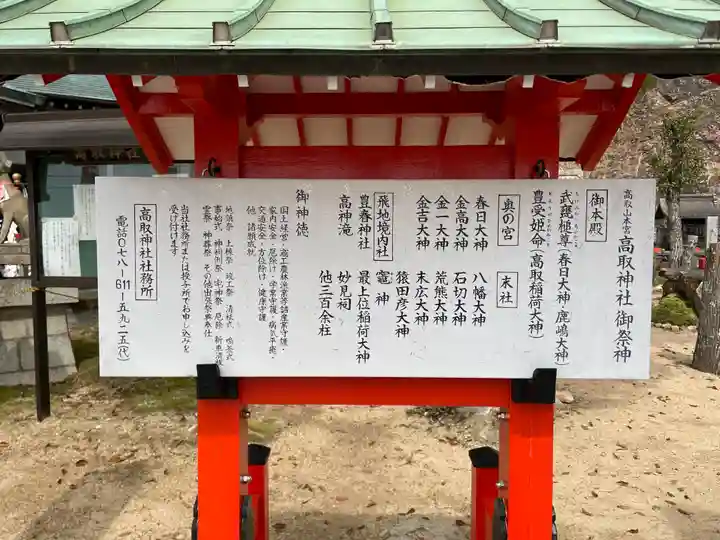 高取山本宮 高取神社 御祭神
御本殿
武甕槌尊(春日大神 鹿嶋大神)
豊受姫命(高取稲荷大神)
奥の宮 末社
春日大神 八幡大神
金高大神 石切大神
金一大神 荒熊大神
金吉大神 末広大神
猿田彦大神
飛地境内社 竈神
豊春神社 最上位稲荷大神
高神滝 妙見祠
他三百余柱
御神徳
国土経営・商工農林漁業等諸産業守護・
家内安全・厄除け・学業守護・病気平癒・
交通安全・方位除け・健康守護
他、諸願成就。
地鎮祭 上棟祭 竣工祭 清祓式
事始式 神棚祭 宅神祭 厄除 新車清祓
霊祭 神葬祭 その他出張祭典奉仕
当社社務所または授与所でお申し込みを
受け付けます
高取神社社務所
電話〇七八-611-五九二五(代)
高取神社